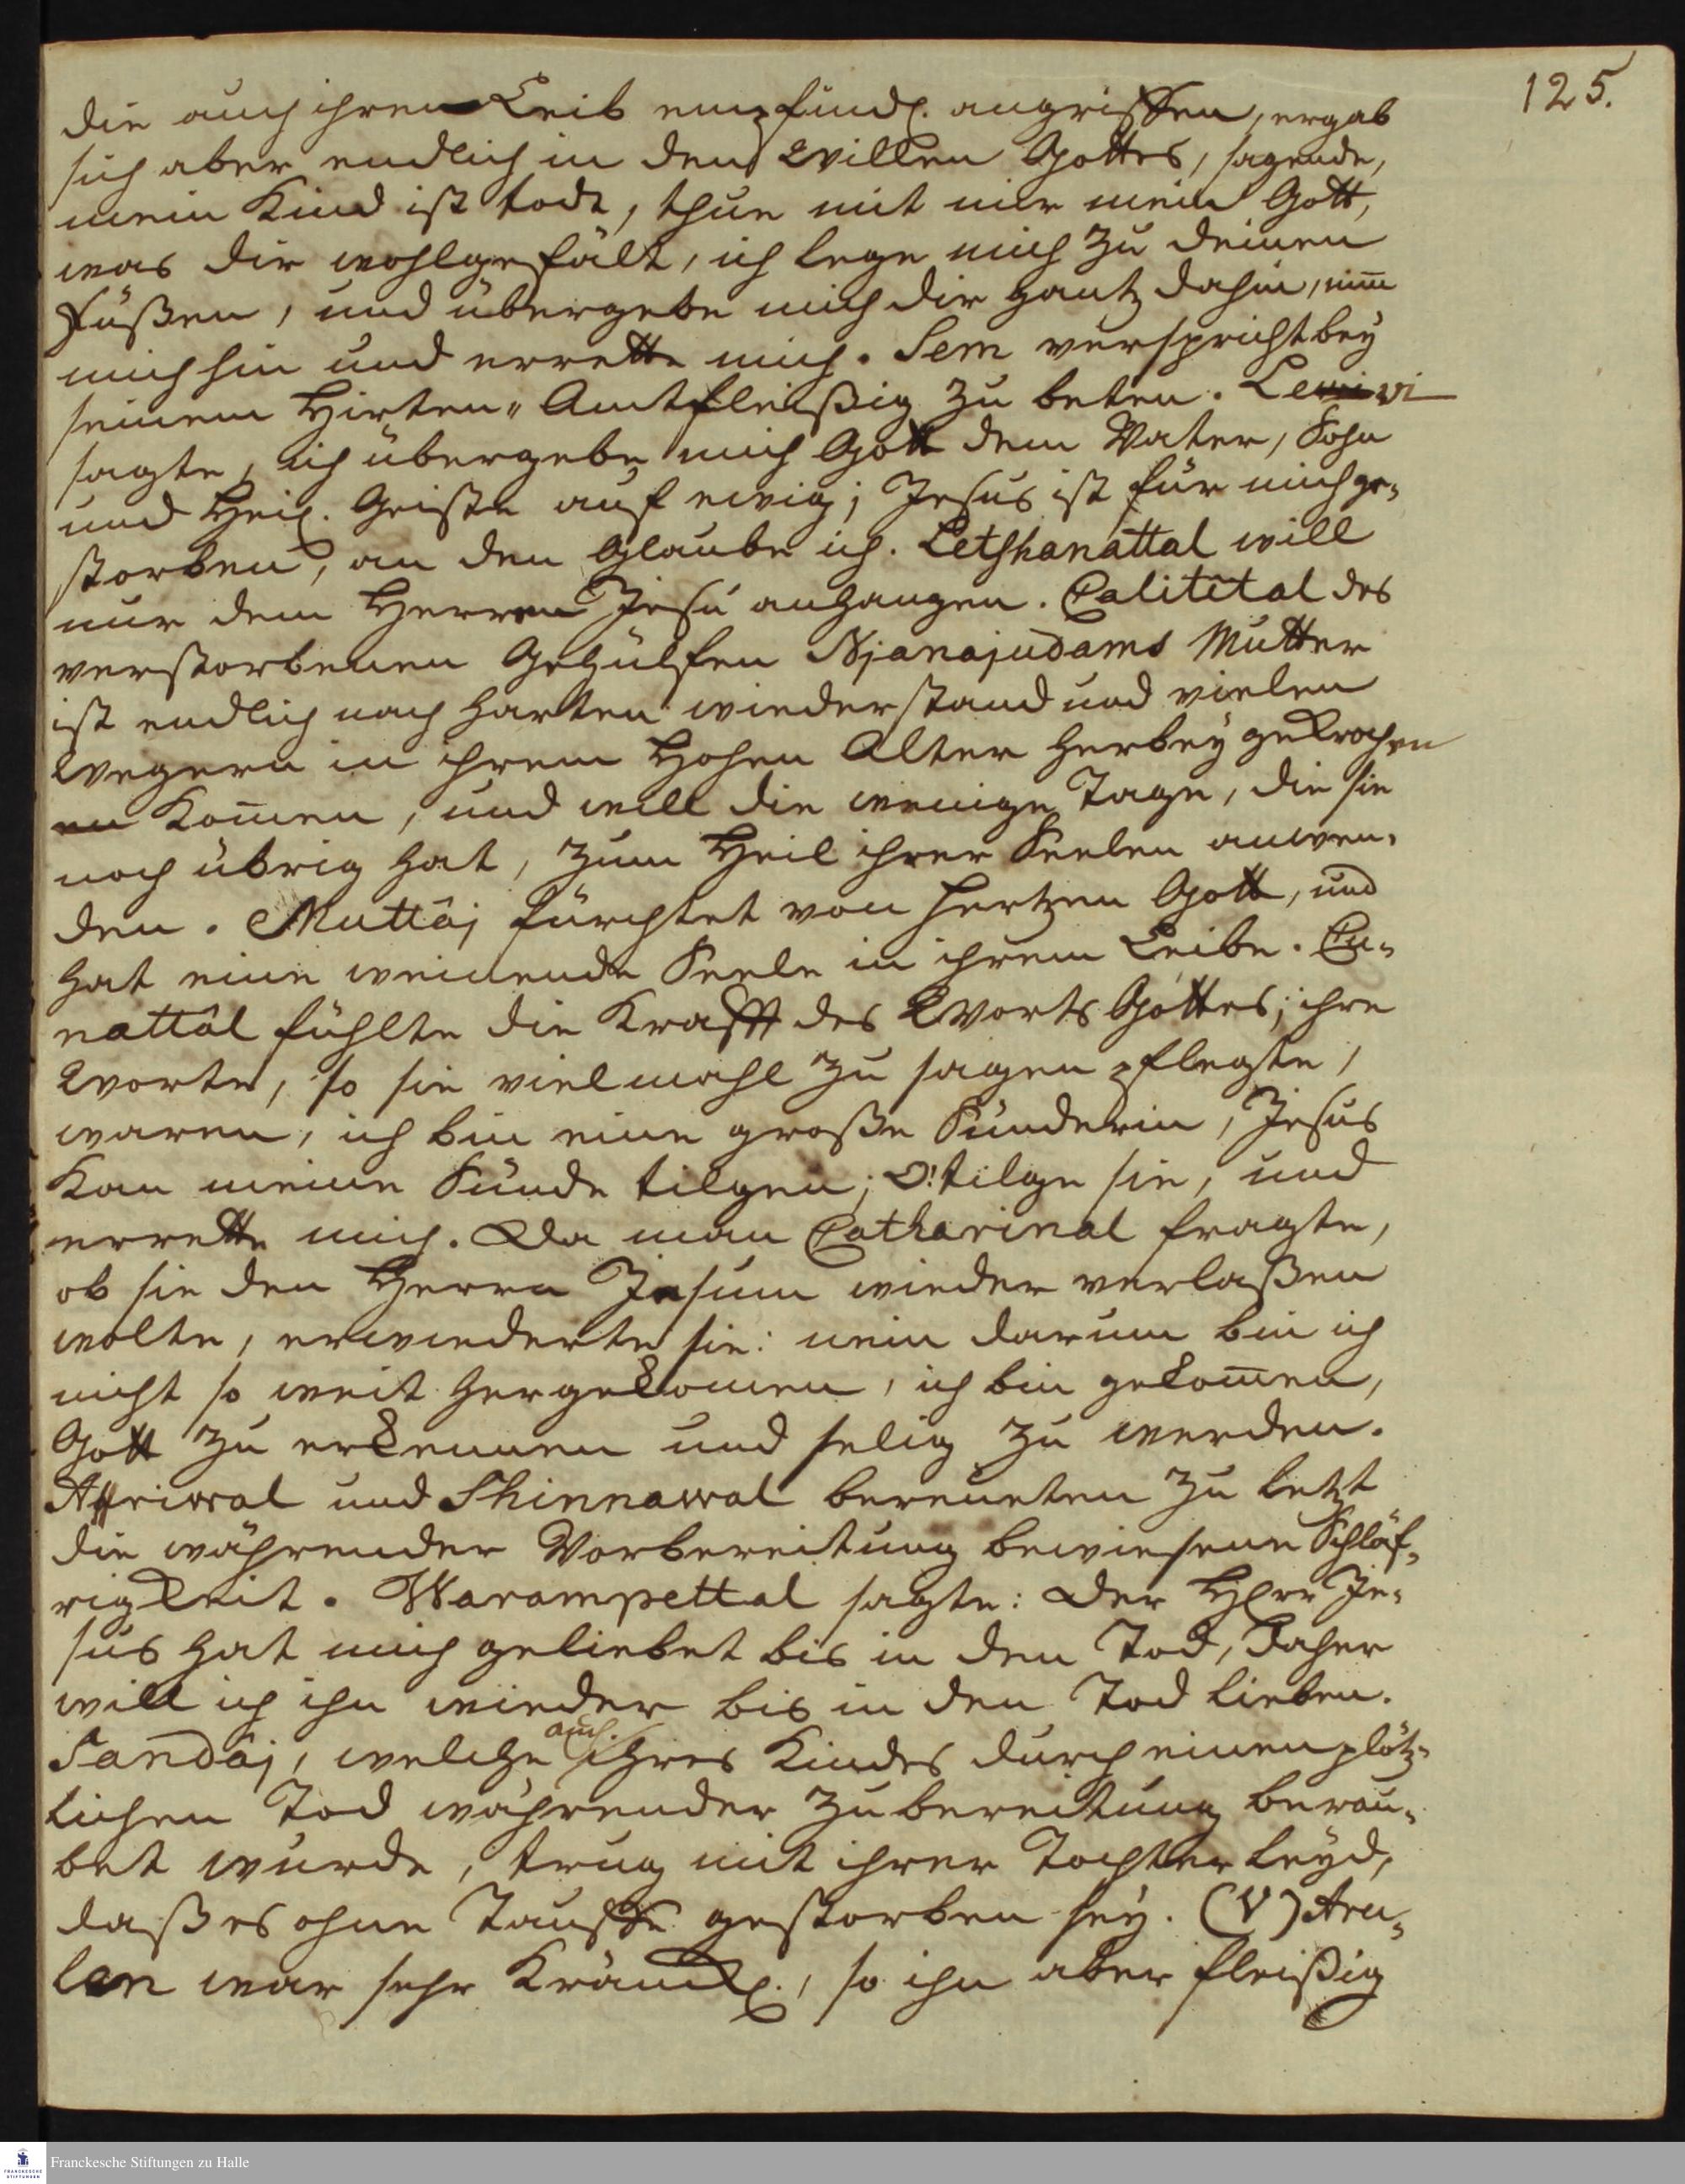 125.
die auch ihren Leib empfindl. angriffen, ergab
sich aber endlich in den Willen Gottes, sagende,
mein Kind ist todt, thue mit mir mein Gott,
was dir wohlgefält, ich lege mich zu deinen
Füßen, und übergebe mich dir gantz dahin, nim̄
mich hin und errette mich. Sem verspricht bey
seinem Hirten-Amt fleißig zu beten. Levi
sagte, ich übergebe mich Gott dem Vater, Sohn
und Heil. Geiste auf ewig; Jesus ist für mich ge-
storben, an den Glaube ich. Letshanattal will
nur dem Herren Jesu anhangen. Calitîtal des
verstorbenen Gehülfen Njanajudams Mutter
ist endlich nach harten wiederstand und vielen
Wegern in ihrem Hohen Alter herbey gekrochen
Kom̄en, und will die wenige Tage, die sie
noch übrig hat, zum Heil ihrer Seelen anwen-
den. Muttâj fürchtet von Hertzen Gott, und
hat eine weinende Seele in ihrem Leibe. Cu-
nattâl fühlte die Krafft des Worts Gottes; ihre
Worte, so sie vielmahl zu sagen pflegte,
waren, ich bin eine große Sünderin, Jesus
Kan meine Sünde tilgen; O! tilge sie, und
errette mich. Da man Catharinal fragte,
ob sie den Herrn Jesum wieder verlaßen
wolte, erwiederte sie: nein darum bin ich
nicht so weit hergekom̄en, ich bin gekom̄en,
Gott zu erkennen und selig zu werden.
und Shinnawal bereueten zu letzt
die währender Vorbereitung bewiesene Schläf-
rigkeit. Warampettal sagte: der Herr Je-
sus hat mich geliebet bis in den Tod, daher
will ich ihn wieder bis in den Tod lieben.
Tandâj, welche auch ihres Kindes durch einen plötz-
lichen Tod währender Zubereitung berau-
bet wurde, trug mit ihrer Tochter Leyd,
daß es ohne Tauffe gestorben sey. (V) Aru-
len war sehr Kräncklich., so ihn aber fleißig
Franckesche Stiftungen zu Halle
FRANCKESCHE
STIFTUNGEN